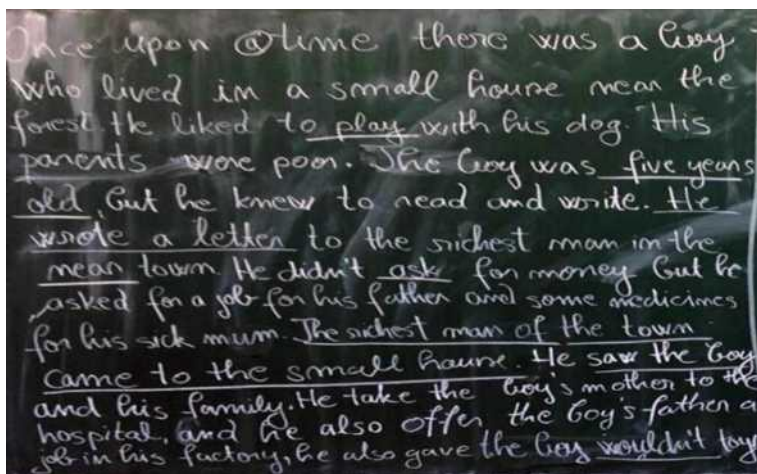 Once upon @time there was a boy
who lived in a small house near the
forest. He liked to play with his dog. His
parents were poor. The boy was five years
old, but he knew to read and write. He
wrote a letter to the richest man in the
near town. He didn't ask for money but he
asked for a job for his father and some medicines
for his sick mum. The richest man of the town
came to the small house. He saw the boy
and his family. He take the boy's mother to the
hospital, and he also offer the boy's father a
job in his factory, he also gave the boy wouldn't toys